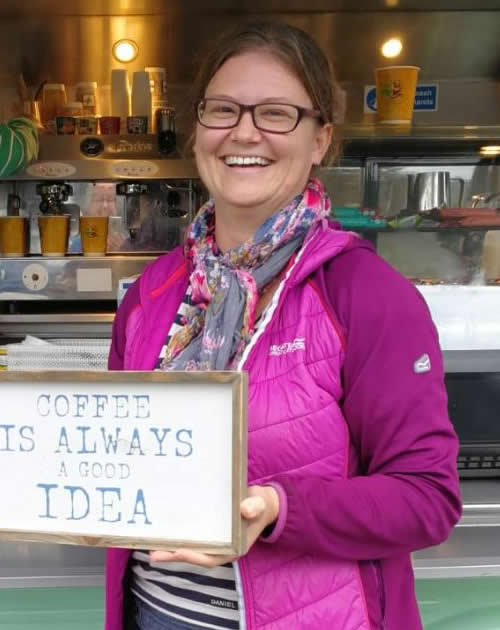 COFFEE
IS ALWAYS
A GOOD
IDEA
DANIEL